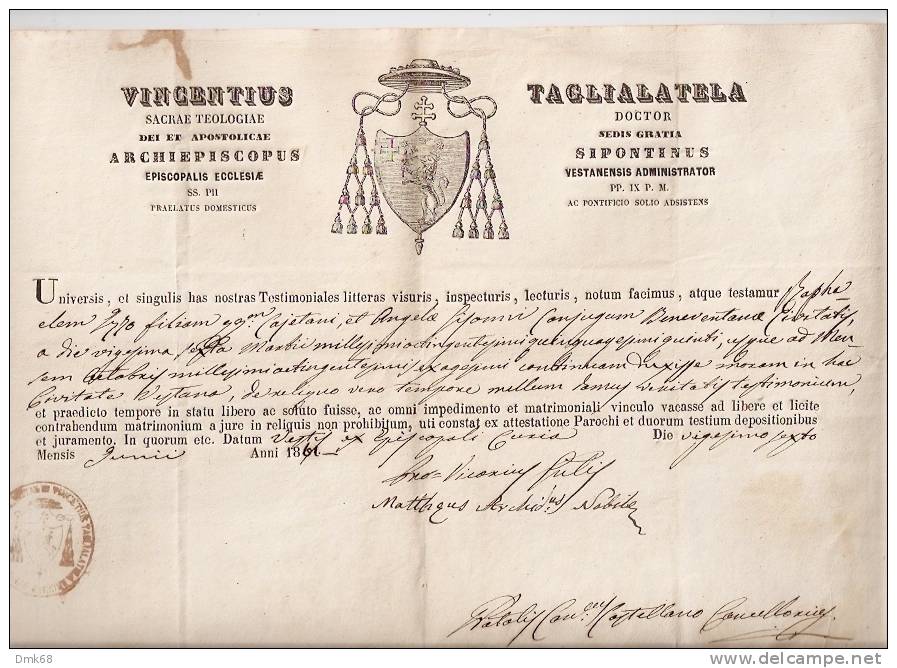 VINCENTIUS TAGLIALATELA
SACRAE TEOLOGIAE DOCTOR
DEI ET APOSTOLICAE SEDIS GRATIA
ARCHIEPISCOPUS SIPONTINUS
EPISCOPALIS ECCLESIÆ VESTANENSIS ADMINISTRATOR
SS. PII PP. IX P. M.
PRAELATUS DOMESTICUS AC PONTIFICIO SOLIO ADSISTENS
Universis, et singulis has nostras Testimoniales litteras visuris, inspecturis, lecturis, notum facimus, atque testamur Rapha-
elem Izzo filium Cajetani, et Angelæ conjugum Beneventanæ Civitatis,
a die vigesima sexta millesimioctingentesimi quinquagesimi quinti, usque ad Men-
sem Octobris millesimioctingentesimi sexagesimi continuam duxisse moram in hac
Civitate Vestana, de reliquo vero tempore nullum damus veritatis testimonium,
et praedicto tempore in statu libero ac soluto fuisse, ac omni impedimento et matrimoniali vinculo vacasse ad libere et licite
contrabendum matrimonium a jure in reliquis non prohibitum, uti constat ex attestatione Parochi et duorum testium depositionibus
et juramento. In quorum etc. Datum Vestis ex Episcopali Curia Die vigesimo sexto
Mensis Junii Anni 1861
Pro Vicarius
Mattheus Archid.us Nobile
Natalis Can.cus Castellano Cancellarius
Dmk68
delcampe.net